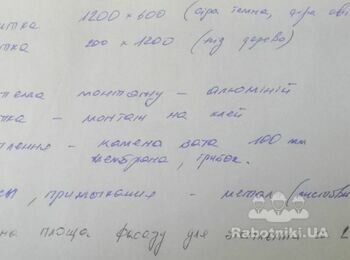 итка 1200 × 600 (сіра темна, сіра сві
итка 200 × 1200 (під дерево)
тема монтажу – алюміній
тка – монтаж на клей
плення – камена вата 100 мм
мембрана, грибок.
си, примикання – метал (
на площа фасаду для
Rabotniki.UA